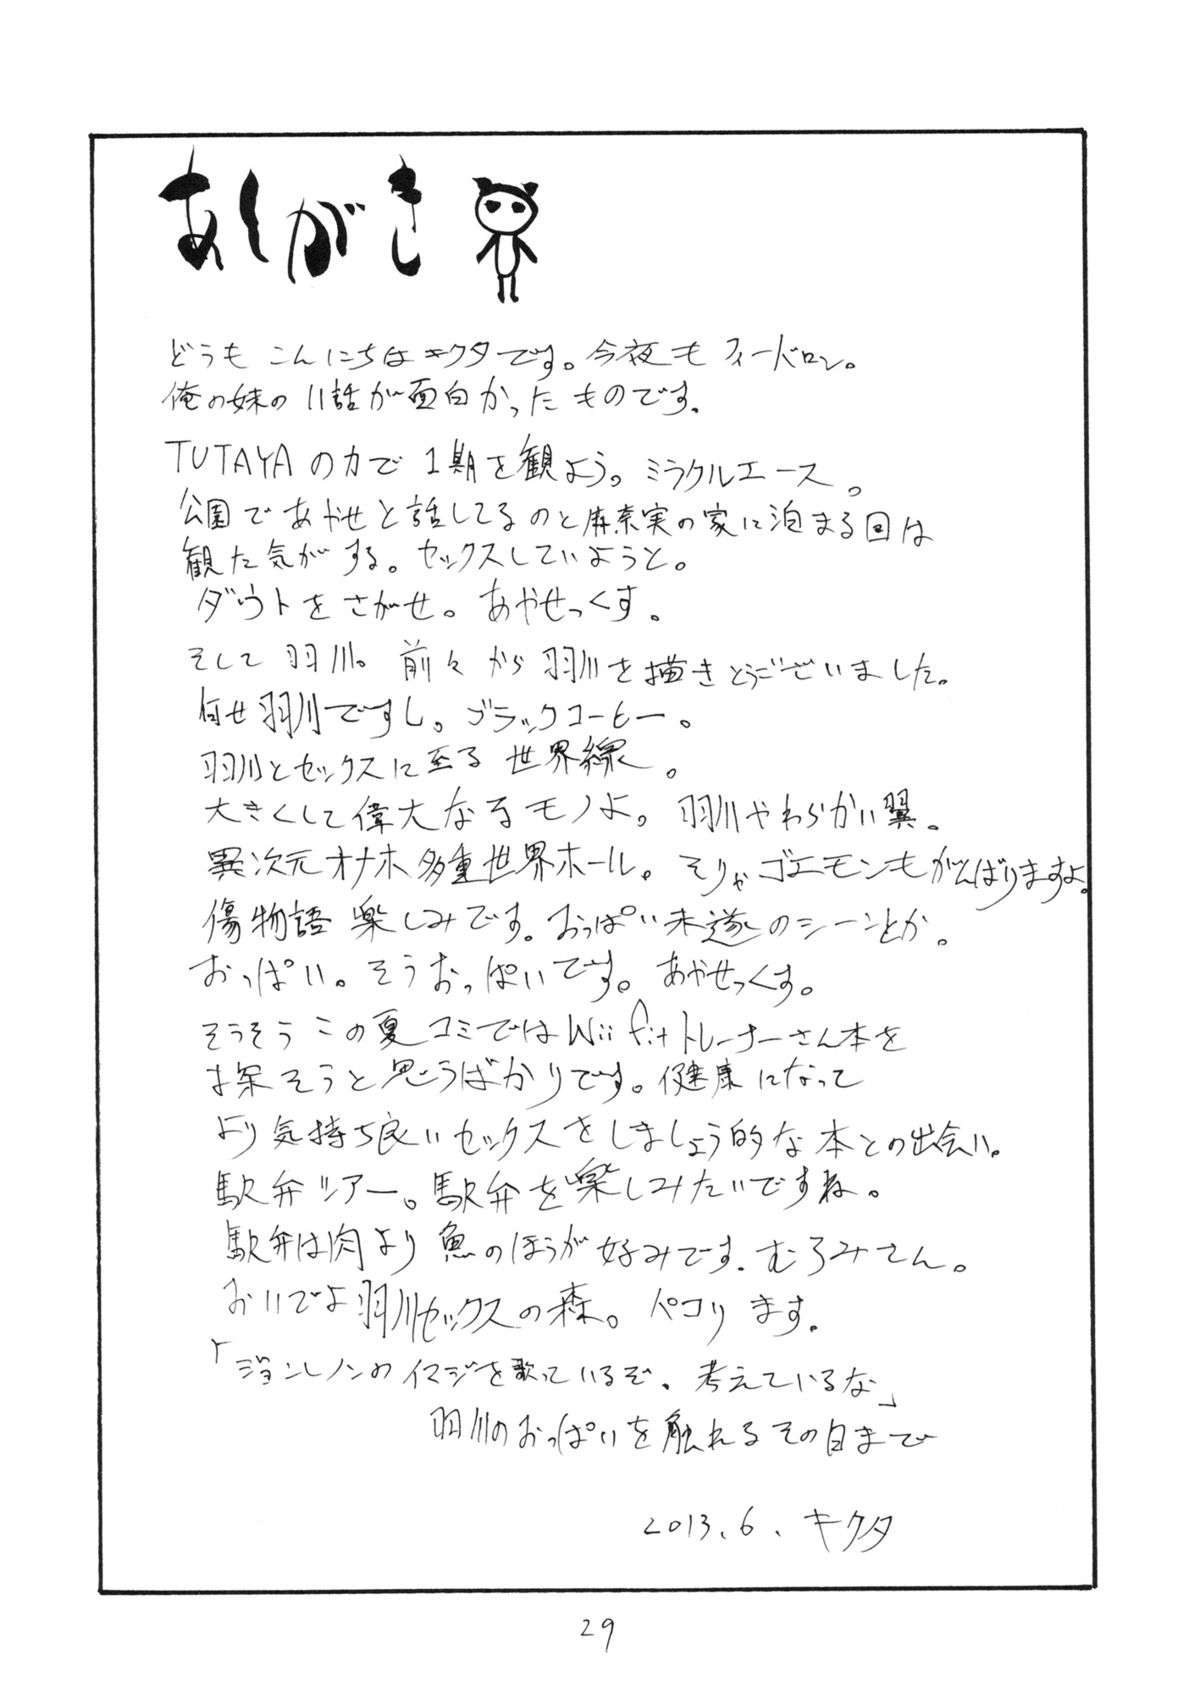 あとがき
どうも こんにちは キクタです。今夜も フィードロン。
俺の妹の 11話が面白かった ものです。
TUTAYAの力で 1期を観よう。ミラクルエース。
公園であやせと話してるのと麻奈実の家に泊まる回は
観た気がする。セックスしていようと。
ダウトをさがせ。あやせっくす。
そして 羽川。前々から羽川を描きとうございました。
何せ羽川ですし。ブラックコーヒー。
羽川とセックスに至る 世界線。
大きくして偉大なるモノよ。羽川やわらかい翼。
異次元オナホ多重世界ホール。そりゃゴエモンもがんばりますよ。
傷物語 楽しみです。おっぱい未遂のシーンとか。
おっぱい。そうおっぱいです。あやせっくす。
そうそう この夏コミではWii fitトレーナーさん本を
探そうと思うばかりです。健康になって
より気持ち良いセックスをしましょう的な本との出会い。
駅弁ツアー。駅弁を楽しみたいですね。
駅弁は肉より魚のほうが好みです。むろみさん。
おいでよ羽川セックスの森。ペコります。
「ジョンレノンのイマジンを歌っているぞ。考えているな」
羽川のおっぱいを触れるその日まで
2013.6. キクタ
29